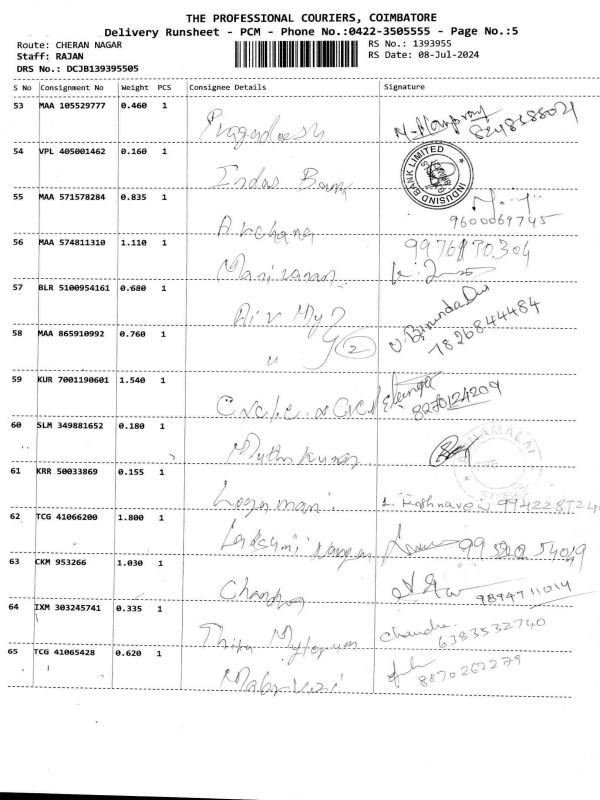 THE PROFESSIONAL COURIERS, COIMBATORE
Delivery Runsheet - PCM - Phone No.:0422-3505555 - Page No.:5
Route: CHERAN NAGAR
RS No.: 1393955
Staff: RAJAN
RS Date: 08-Jul-2024
DRS No.: DCJB139395505
S No Consignment No Weight PCS Consignee Details Signature
53 MAA 105529777 0.460 1
8248388021
54 VPL 405001462 0.160 1
Indus Bank
INDUSIND BANK LIMITED
55 MAA 571578284 0.835 1
Archana
9600069745
56 MAA 574811310 1.110 1
Manimaran
57 BLR 5100954161 0.680 1
Air
7826844484
58 MAA 865910992 0.760 1
"
2
59 KUR 7001190601 1.540 1
8270124209
60 SLM 349881652 0.180 1
Muthukumar
61 KRR 50033869 0.155 1
Logamani
62 TCG 41066200 1.800 1
Lakshmi Narayanan
63 CKM 953266 1.030 1
9894711014
64 IXM 303245741 0.335 1
Chandru
6383532740
65 TCG 41065428 0.620 1
8870262279